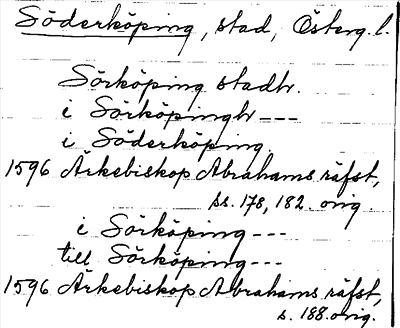 Söderköping, stad, Österg. l.
Sörköping stadh.
i Sörköpingh ---
i Söderköping.
1596 Ärkebiskop Abrahams räfst,
ss. 178, 182. orig
i Sörköping ---
till Sörköping ---
1596 Ärkebiskop Abrahams räfst,
s. 188. orig.